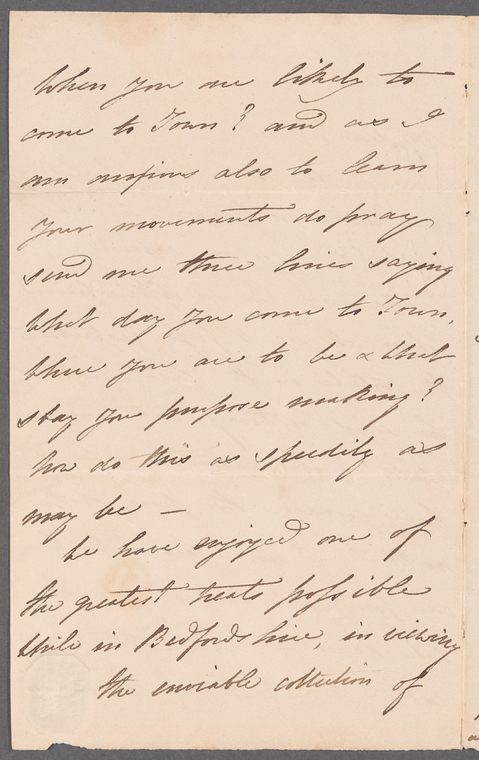 When you are likely to
come to Town? and as I
am anxious also to learn
your movements do pray
send me three lines saying
What day you come to Town,
Where you are to be & What
stay you purpose making?
now do this as speedily as
may be —
We have enjoyed one of
the greatest treats possible
While in Bedfordshire, in viewing
the enviable collection of